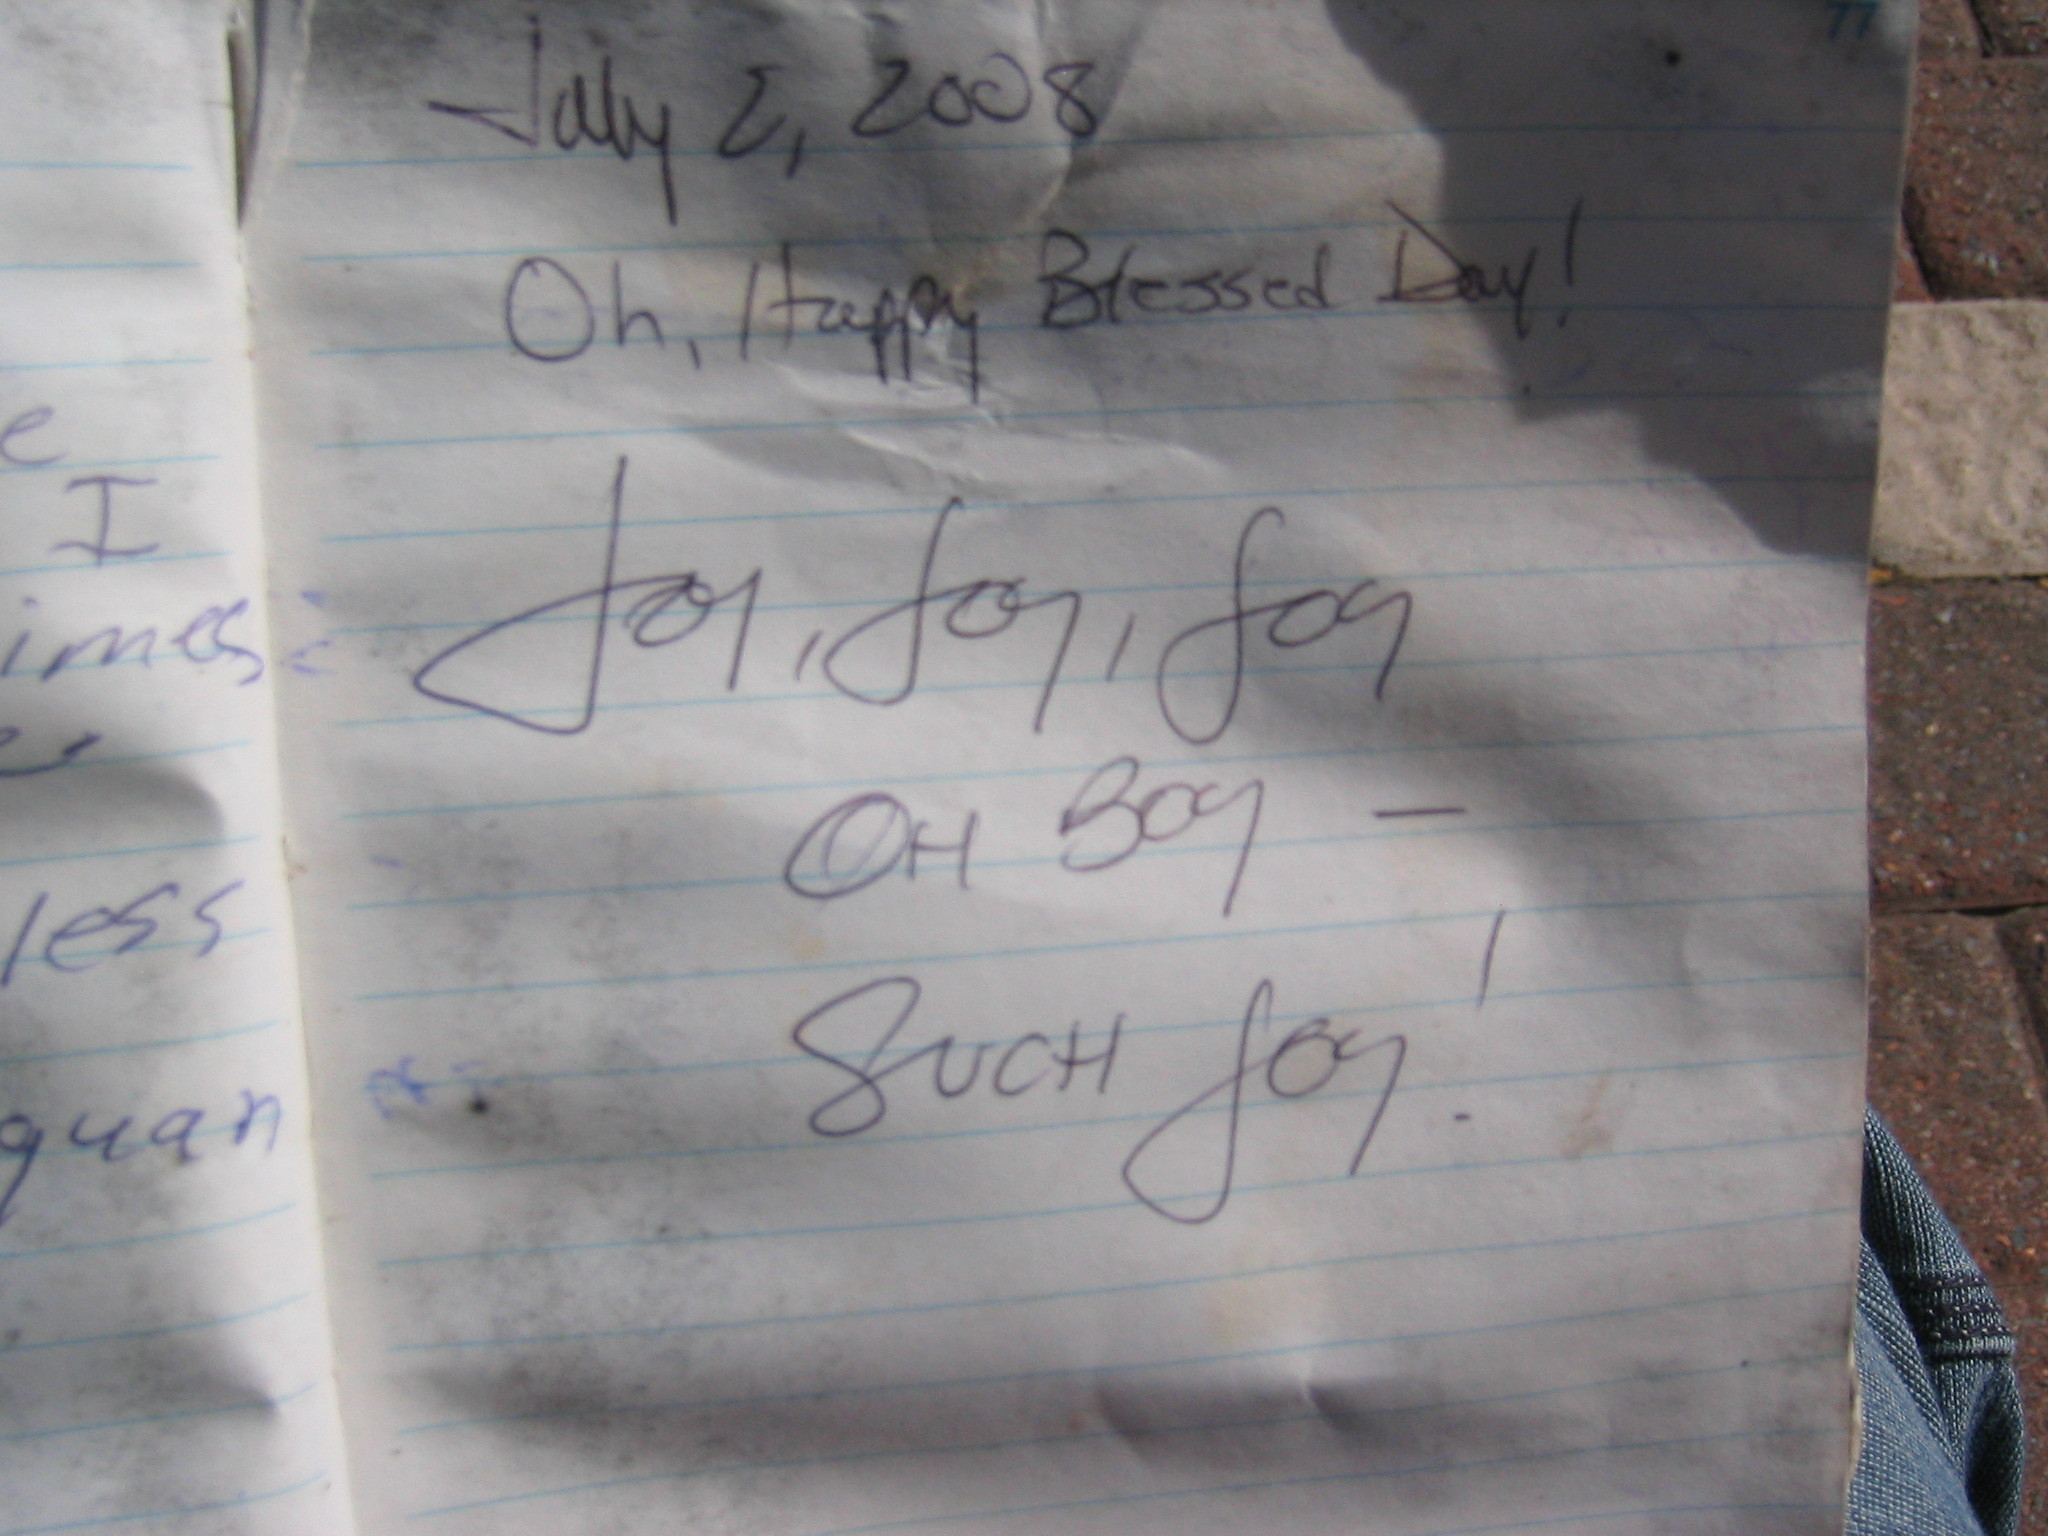 77
July 2, 2008
Oh, Happy Blessed Day!
Joy, Joy, Joy
OH BOY —
SUCH JOY!
e
I
imes
less
quan